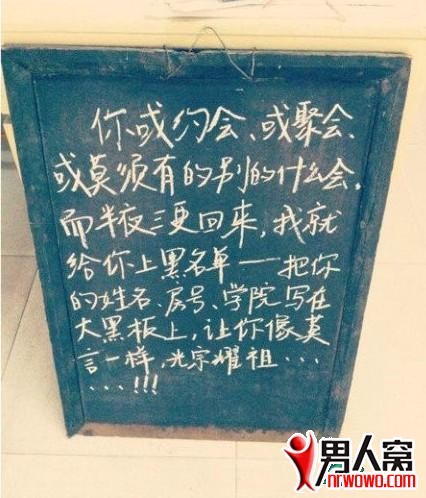 你或约会、或聚会、
或莫须有的别的什么会,
而半夜三更回来,我就
给你上黑名单——把你
的姓名、房号、学院写在
大黑板上,让你像莫
言一样,光宗耀祖...
...!!!
男人窝
nrwowo.com